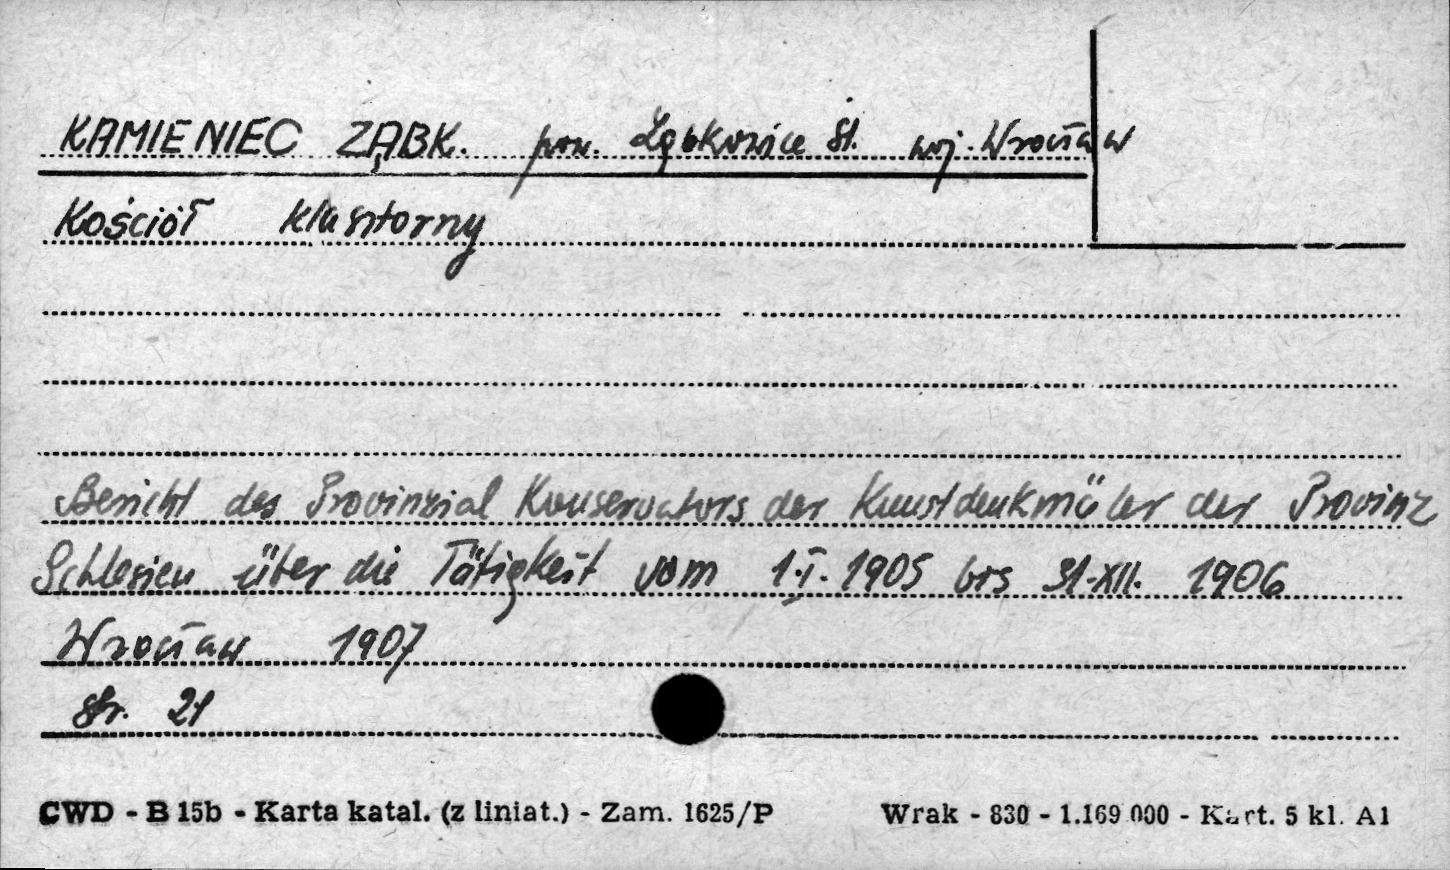 KAMIENIEC ZĄBK. pow. Ząbkowice Śl. woj. Wrocław
Kościół klasztorny
Bericht des Provinzial Konservators der Kunstdenkmäler der Provinz
Schlesien über die Tätigkeit vom 1.I. 1905 bis 31.XII. 1906
Wrocław 1907
str. 21
CWD - B 15b - Karta katal. (z liniat.) - Zam. 1625/P Wrak - 830 - 1.169.000 - Kart. 5 kl. A1